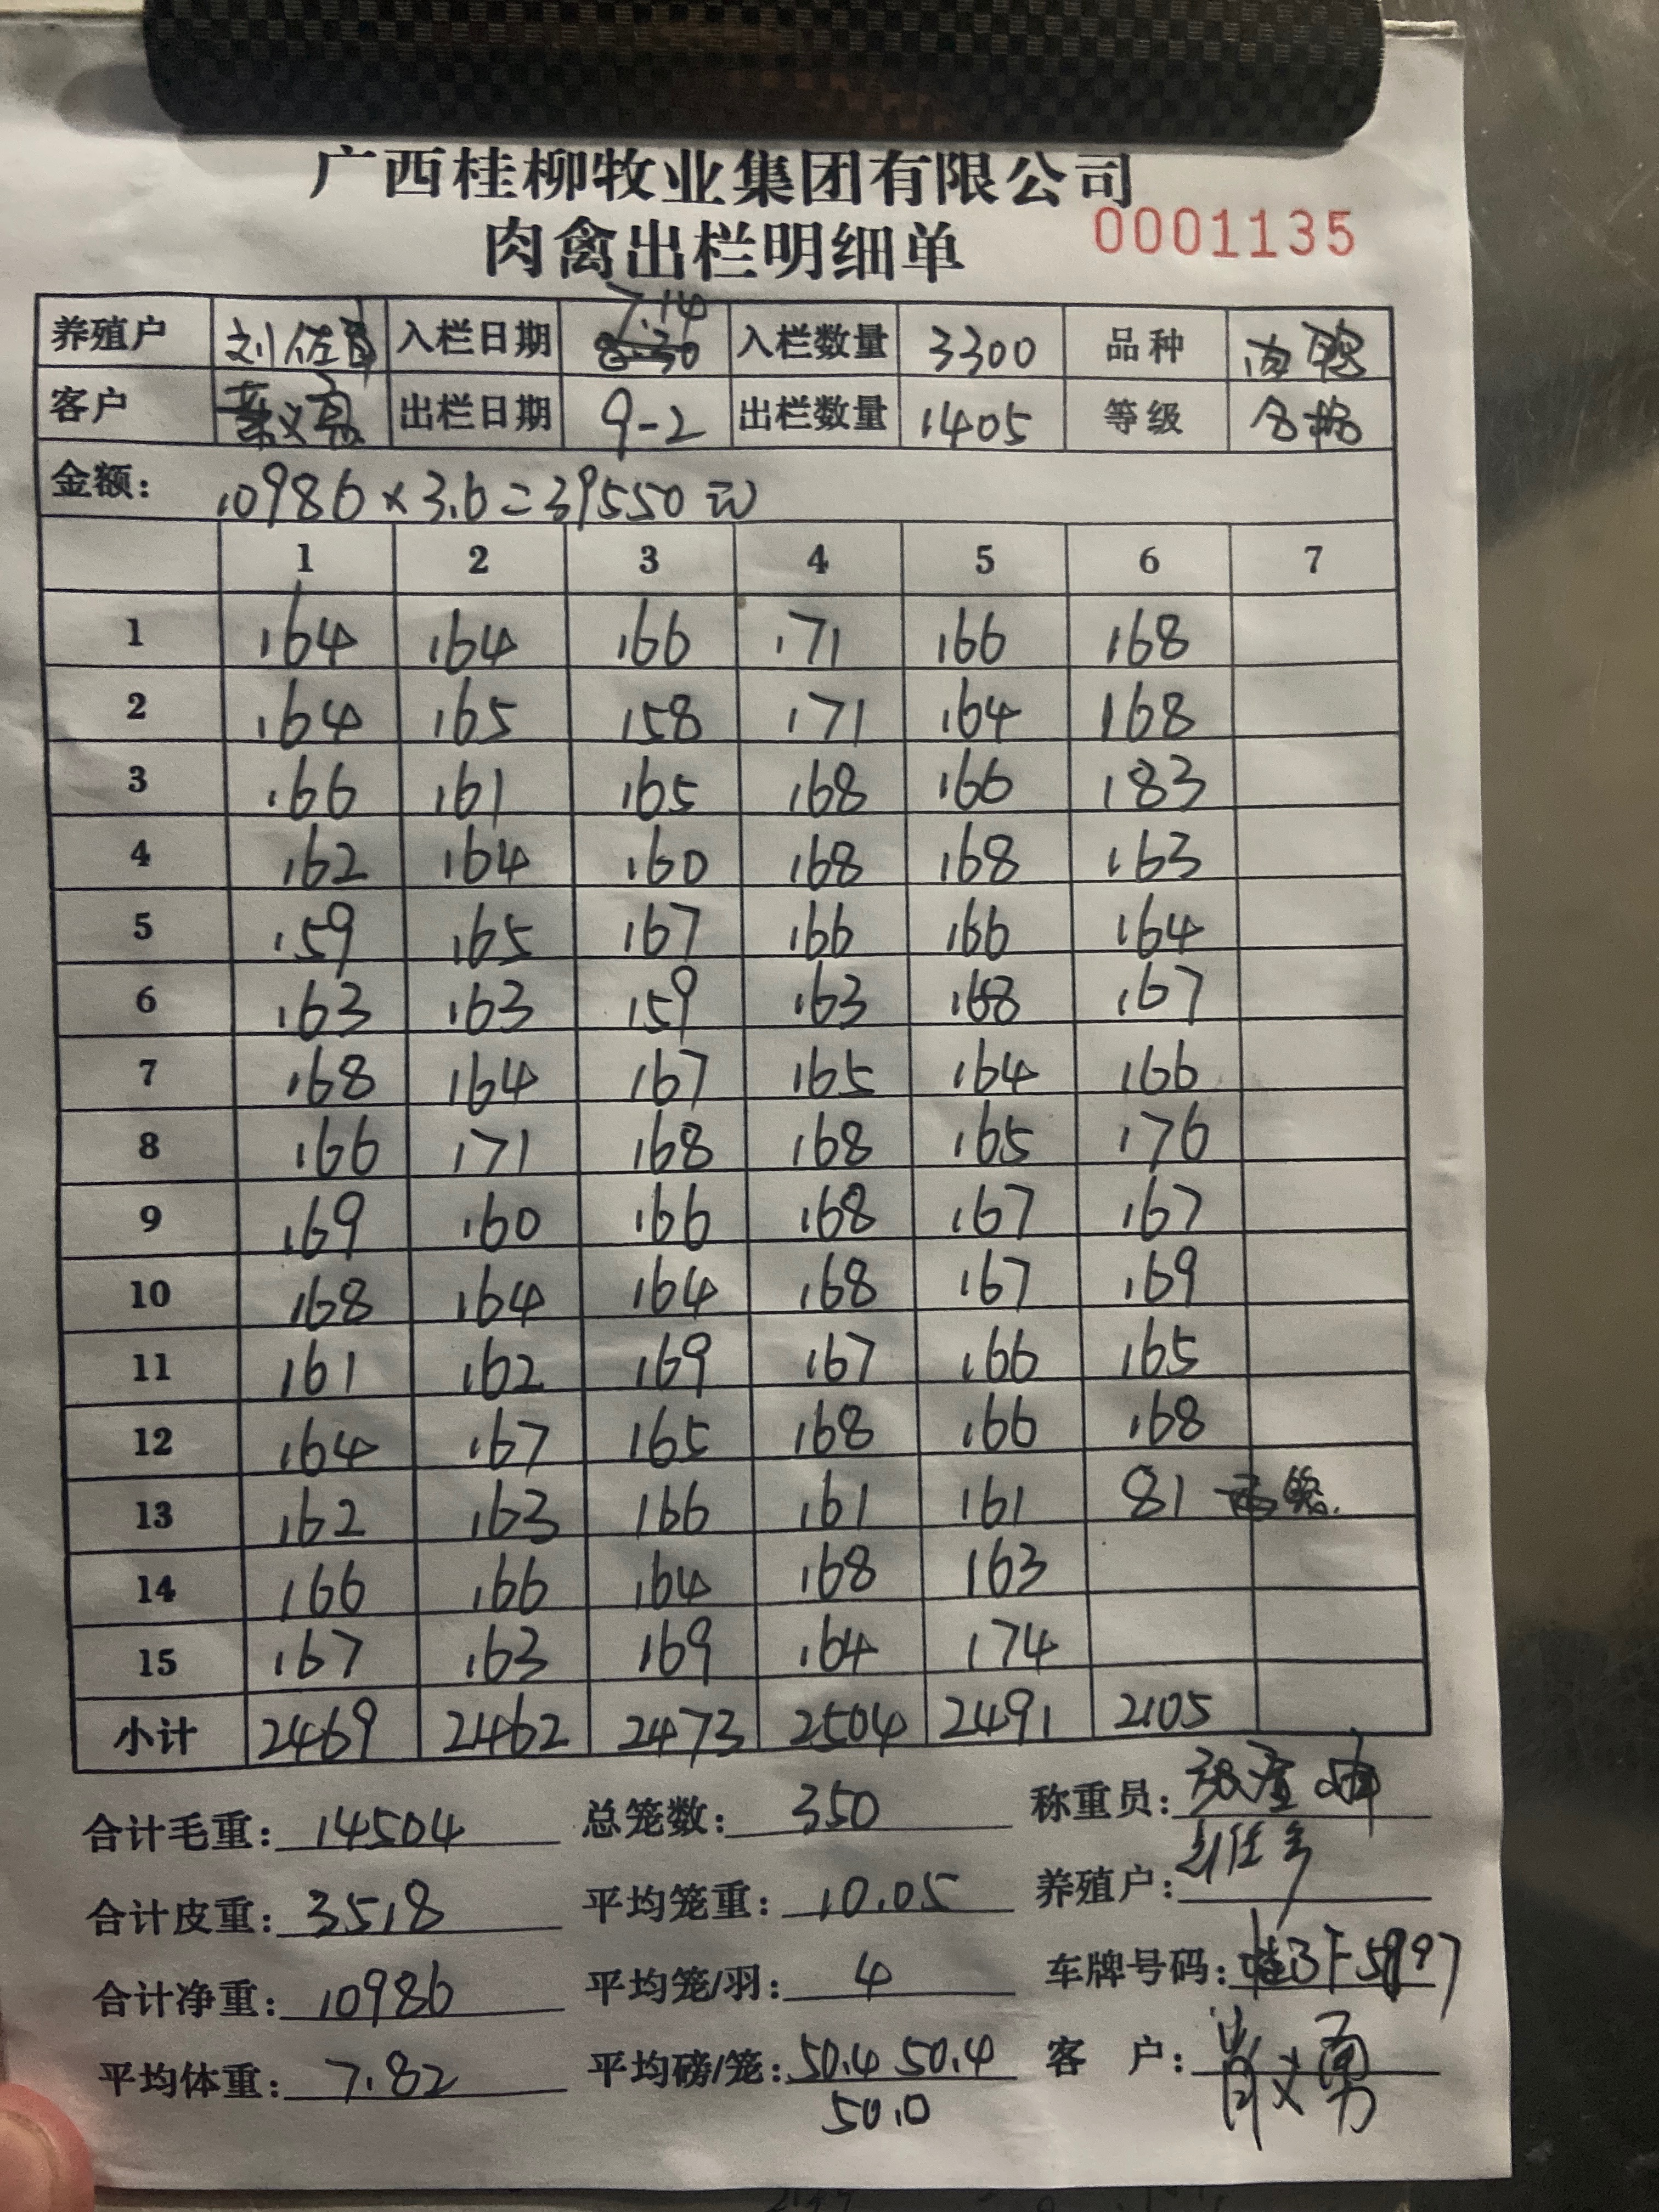 广西桂柳牧业集团有限公司
肉禽出栏明细单 0001135
养殖户 刘佐 入栏日期 7.14 入栏数量 3300 品种 肉鸭
客户 义 出栏日期 9-2 出栏数量 1405 等级 合格
金额: 10986×3.6=39550元
1 2 3 4 5 6 7
1 164 164 166 171 166 168
2 164 165 158 171 164 168
3 166 161 165 168 166 183
4 162 164 160 168 168 163
5 159 165 167 166 166 164
6 163 163 159 163 168 167
7 168 164 167 165 164 166
8 166 171 168 168 165 176
9 169 160 166 168 167 167
10 168 164 164 168 167 169
11 161 162 169 167 166 165
12 164 167 165 168 166 168
13 162 163 166 161 161 81
14 166 166 164 168 163
15 167 163 169 164 174
小计 2469 2462 2473 2504 2491 2105
合计毛重: 14504 总笼数: 350 称重员:
合计皮重: 3518 平均笼重: 10.05 养殖户:
合计净重: 10986 平均笼/羽: 4 车牌号码:
平均体重: 7.82 平均磅/笼: 50.4 50.4 客 户: 肖义勇
50.0